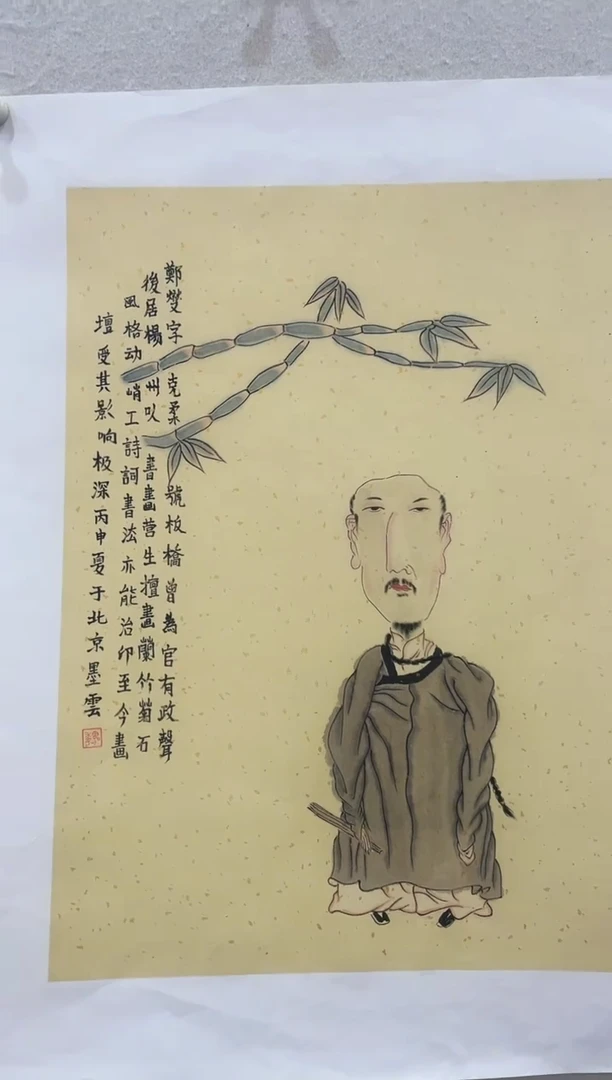 鄭燮字克柔號板橋曾為官有政聲
後居楊州以書畫营生擅畫蘭竹菊石
风格动峭工詩詞書法亦能治印至今畫
壇受其影响极深丙申夏于北京墨雲